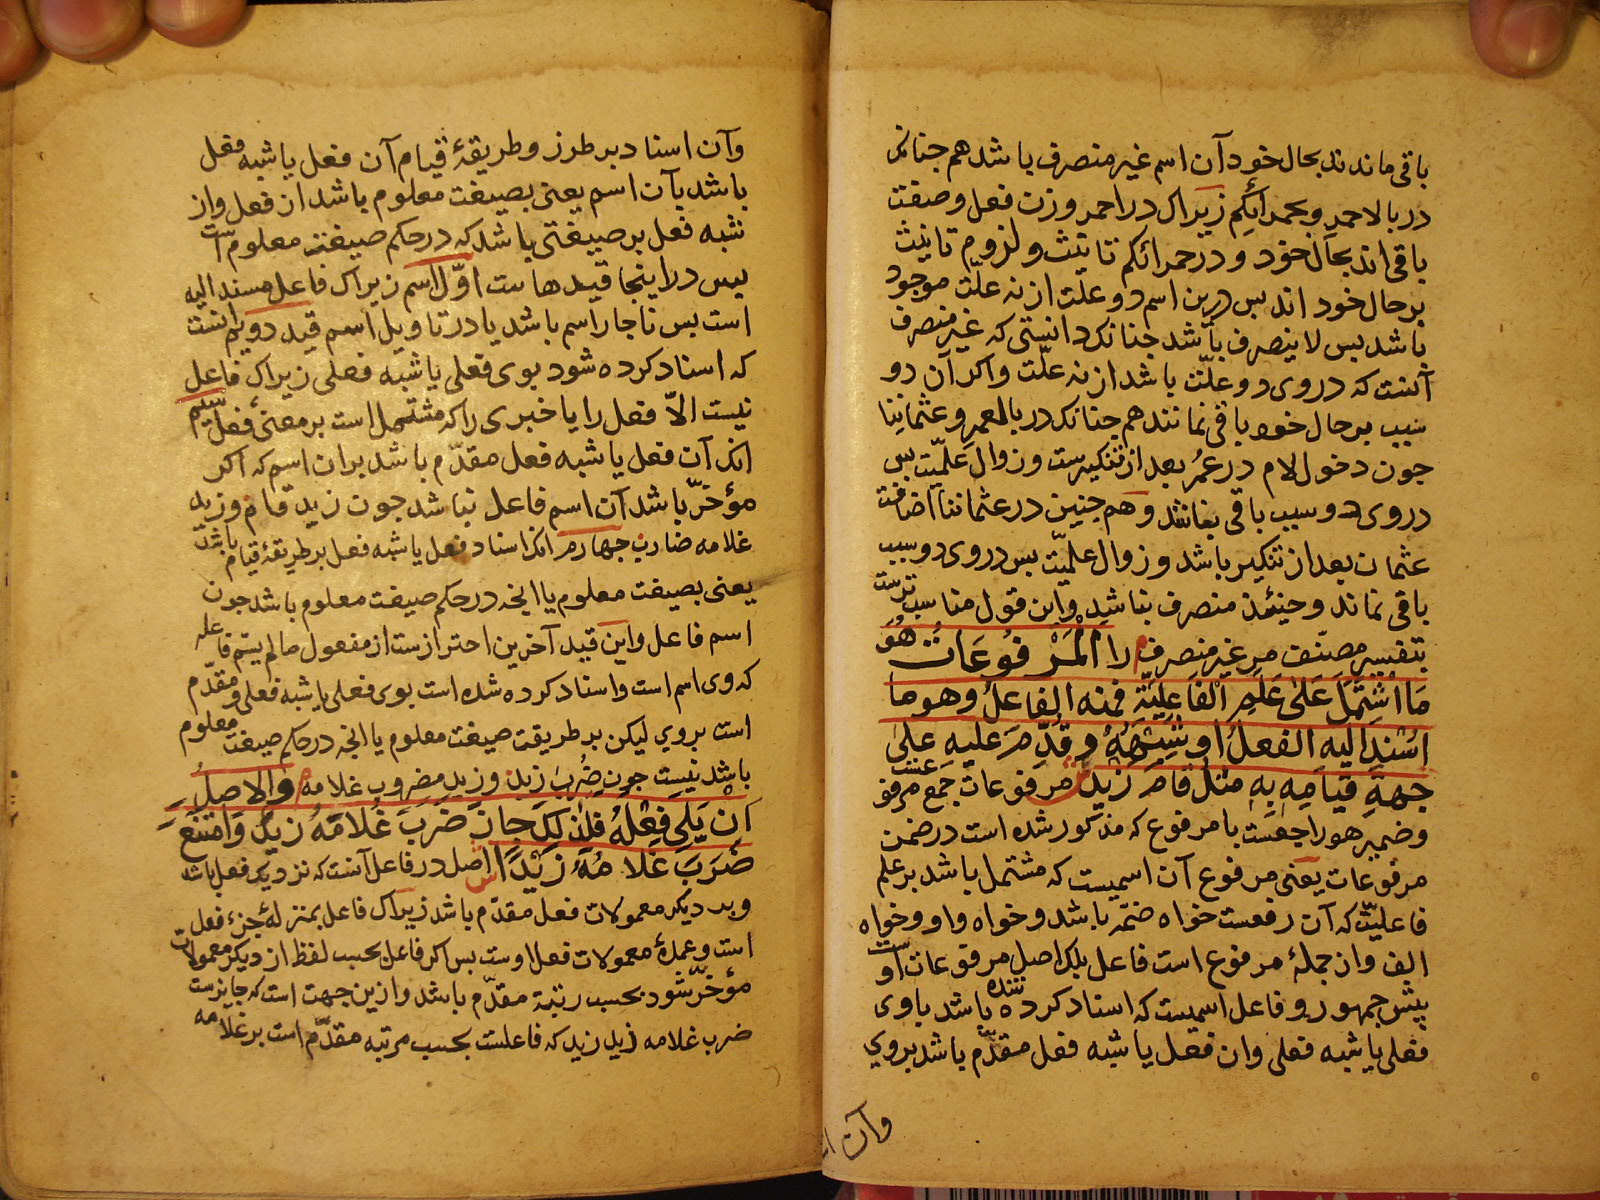 باقی ماندند بحال خود آن اسم غیر منصرف باشد هم جنانکه
در بالاحمر و بحمرائکم زیراک در احمر وزن فعل و صفت
باقی اند بحال خود و در حمرائکم تانیث و لزوم تانیث
بر حال خود اند بس درین اسم دو علت از نه علت موجود
باشد بس لاینصرف باشد جنانک دانستی که غیر منصرف
آنست که در وی دو علت باشد از نه علت واکر آن دو
سبب بر حال خود باقی نمانند هم جنانک در بالعمر و عثماننا
جون دخول لام در عمر بعد از تنکیرست و زوال علمیت بس
در وی دو سبب باقی نمانند و هم جنین در عثماننا اضافت
عثمان بعد از تنکیر باشد و زوال علمیت بس در وی دو سبب
باقی نماند و حینئذ منصرف بناشد و این قول مناسب ترست
بتفسیر مصنف مر غیر منصرف را المرفوعات هو
ما اشتمل على علم الفاعلية فمنه الفاعل وهو ما
اسند اليه الفعل او شبهه وقدم عليه على
جهة قيامه به مثل قام زيد ش مرفوعات جمع مرفوعست
و ضمیر هو راجعست با مرفوع که مذکور شده است در ضمن
مرفوعات یعنی مرفوع آن اسمیست که مشتمل باشد بر علم
فاعلیت که آن رفعست خواه ضمه باشد و خواه واو و خواه
الف و از جملهٔ مرفوع است فاعل بلک اصل مرفوعات اوست
پیش جمهور و فاعل اسمیست که اسناد کرده شده باشد باوی
فعلی یا شبه فعلی وان فعل یا شبه فعل مقدم باشد بروی
وآن ا
وآن اسناد بر طرز و طریقهٔ قیام آن فعل یا شبه فعل
باشد بآن اسم یعنی بصیغت معلوم باشد از فعل و از
شبه فعل بر صیغتی باشد که در حکم صیغت معلوم است
بس در اینجا قیدهاست اول اسم زیراک فاعل مسند الیه
است بس ناجار اسم باشد یا در تاویل اسم قید دویم انست
که اسناد کرده شود بوی فعلی یا شبه فعلی زیراک فاعل
نیست الا فعل را یا خبری را که مشتمل است بر معنی فعل سیم
انک آن فعل یا شبه فعل مقدم باشد بران اسم که اکر
مؤخر باشد آن اسم فاعل نباشد جون زید قام و زید
غلامه ضارب جهارم انک اسناد فعل یا شبه فعل بر طریقهٔ قیام باشد
یعنی بصیغت معلوم یا انجه در حکم صیغت معلوم باشد جون
اسم فاعل و این قید آخرین احترازست از مفعول مالم یسم فاعله
که وی اسم است واسناد کرده شده است بوی فعلی یا شبه فعلی و مقدم
است بروی لیکن بر طریقت صیغت معلوم یا انجه در حکم صیغت معلوم
باشد نیست جون ضرب زید و زید مضروب غلامه والاصل
ان يلي فعله فلذلك جاز ضرب غلامه زيد وامتنع
ضرب غلامه زيدا ش اصل در فاعل آنست که نزدیک فعل باشد
و بر دیکر معمولات فعل مقدم باشد زیراک فاعل بمنزلهٔ جزء فعل
است و عمدهٔ معمولات فعل اوست بس اکر فاعل بحسب لفظ از دیکر معمولات
مؤخر شود بحسب رتبة مقدم باشد و ازین جهت است که جایزست
ضرب غلامه زید زید که فاعلست بحسب مرتبه مقدم است بر غلامه